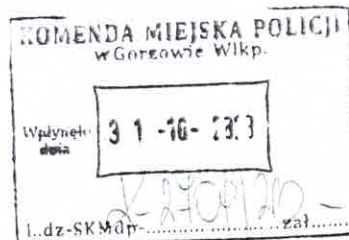 KOMENDA MIEJSKA POLICJI
w Gorzowie Wlkp.
Wpłynęło
dnia
31 -10-
L.dz-SKMdp-.................zał......